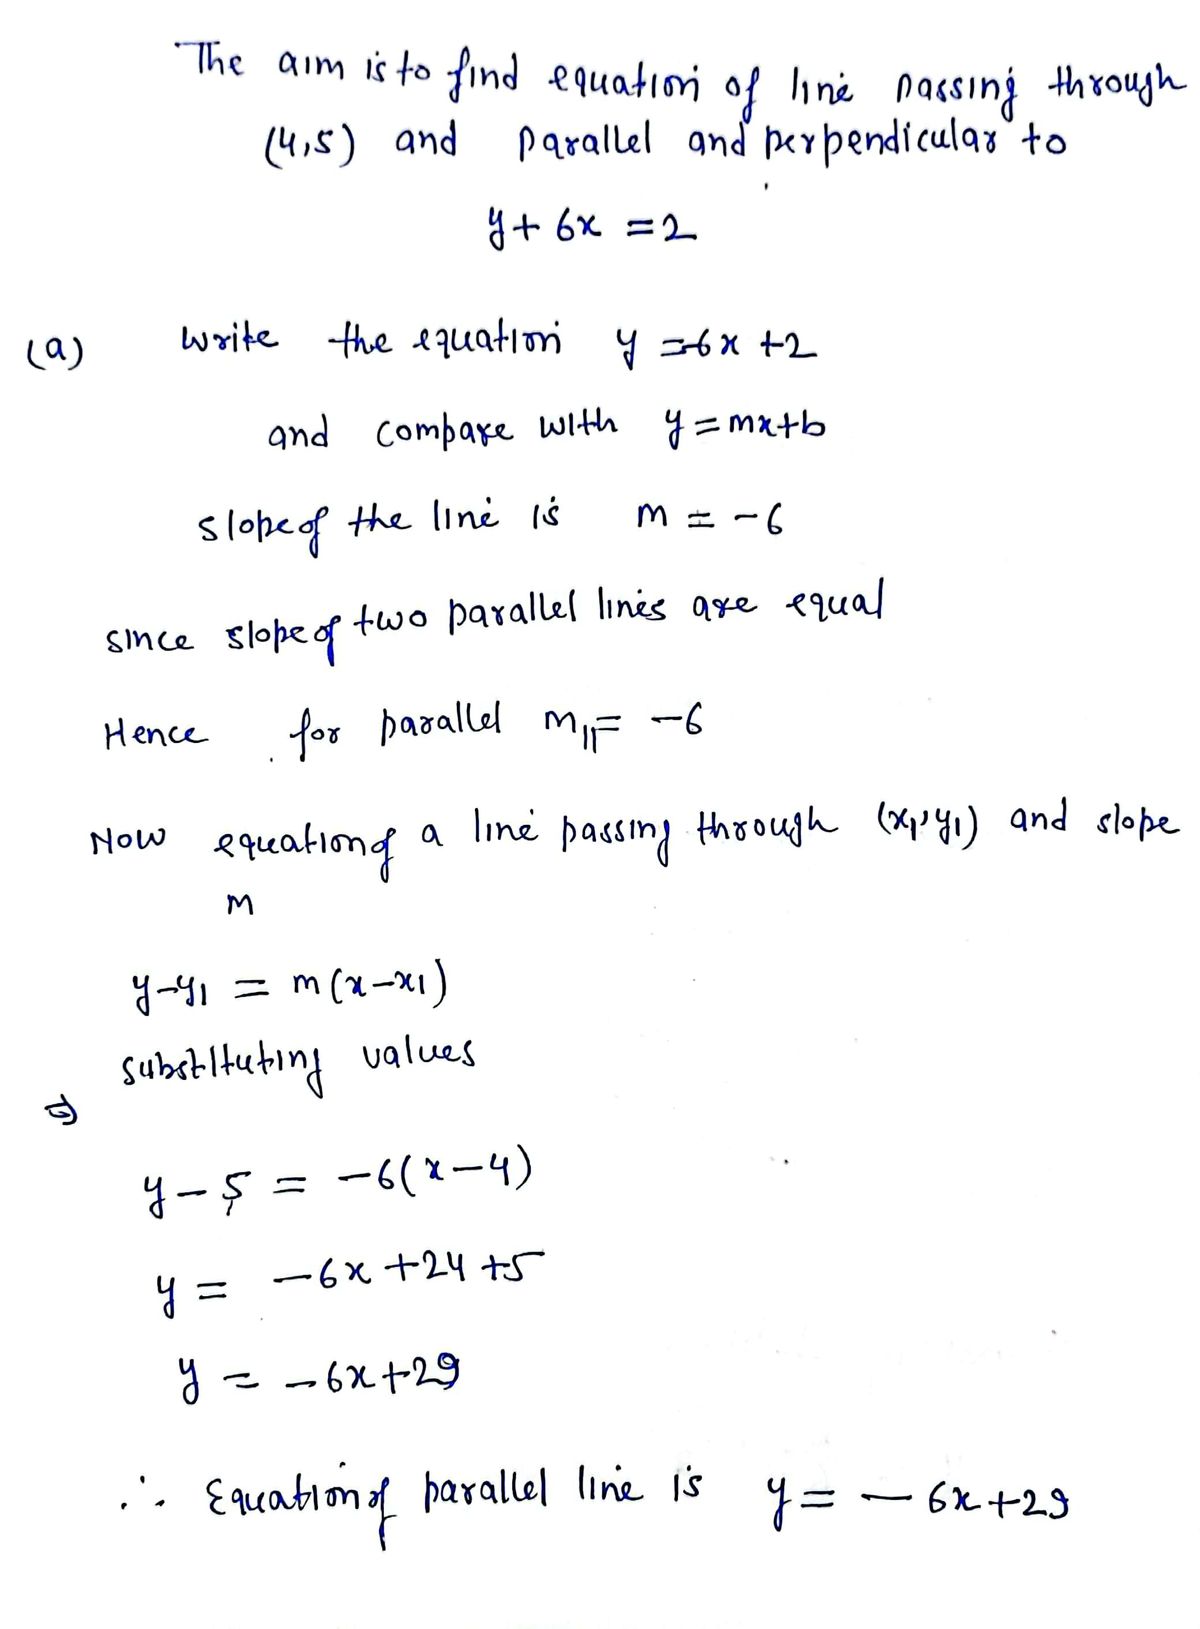 The aim is to find equation of line passing through
(4,5) and parallel and perpendicular to
y + 6x = 2
(a) Write the equation y = -6x + 2
and compare with y = mx + b
slope of the line is m = -6
since slope of two parallel lines are equal
Hence for parallel m₁₁ = -6
Now equation of a line passing through (x₁, y₁) and slope
m
y - y₁ = m(x - x₁)
substituting values
⇒
y - 5 = -6(x - 4)
y = -6x + 24 + 5
y = -6x + 29
∴ Equation of parallel line is y = -6x + 29